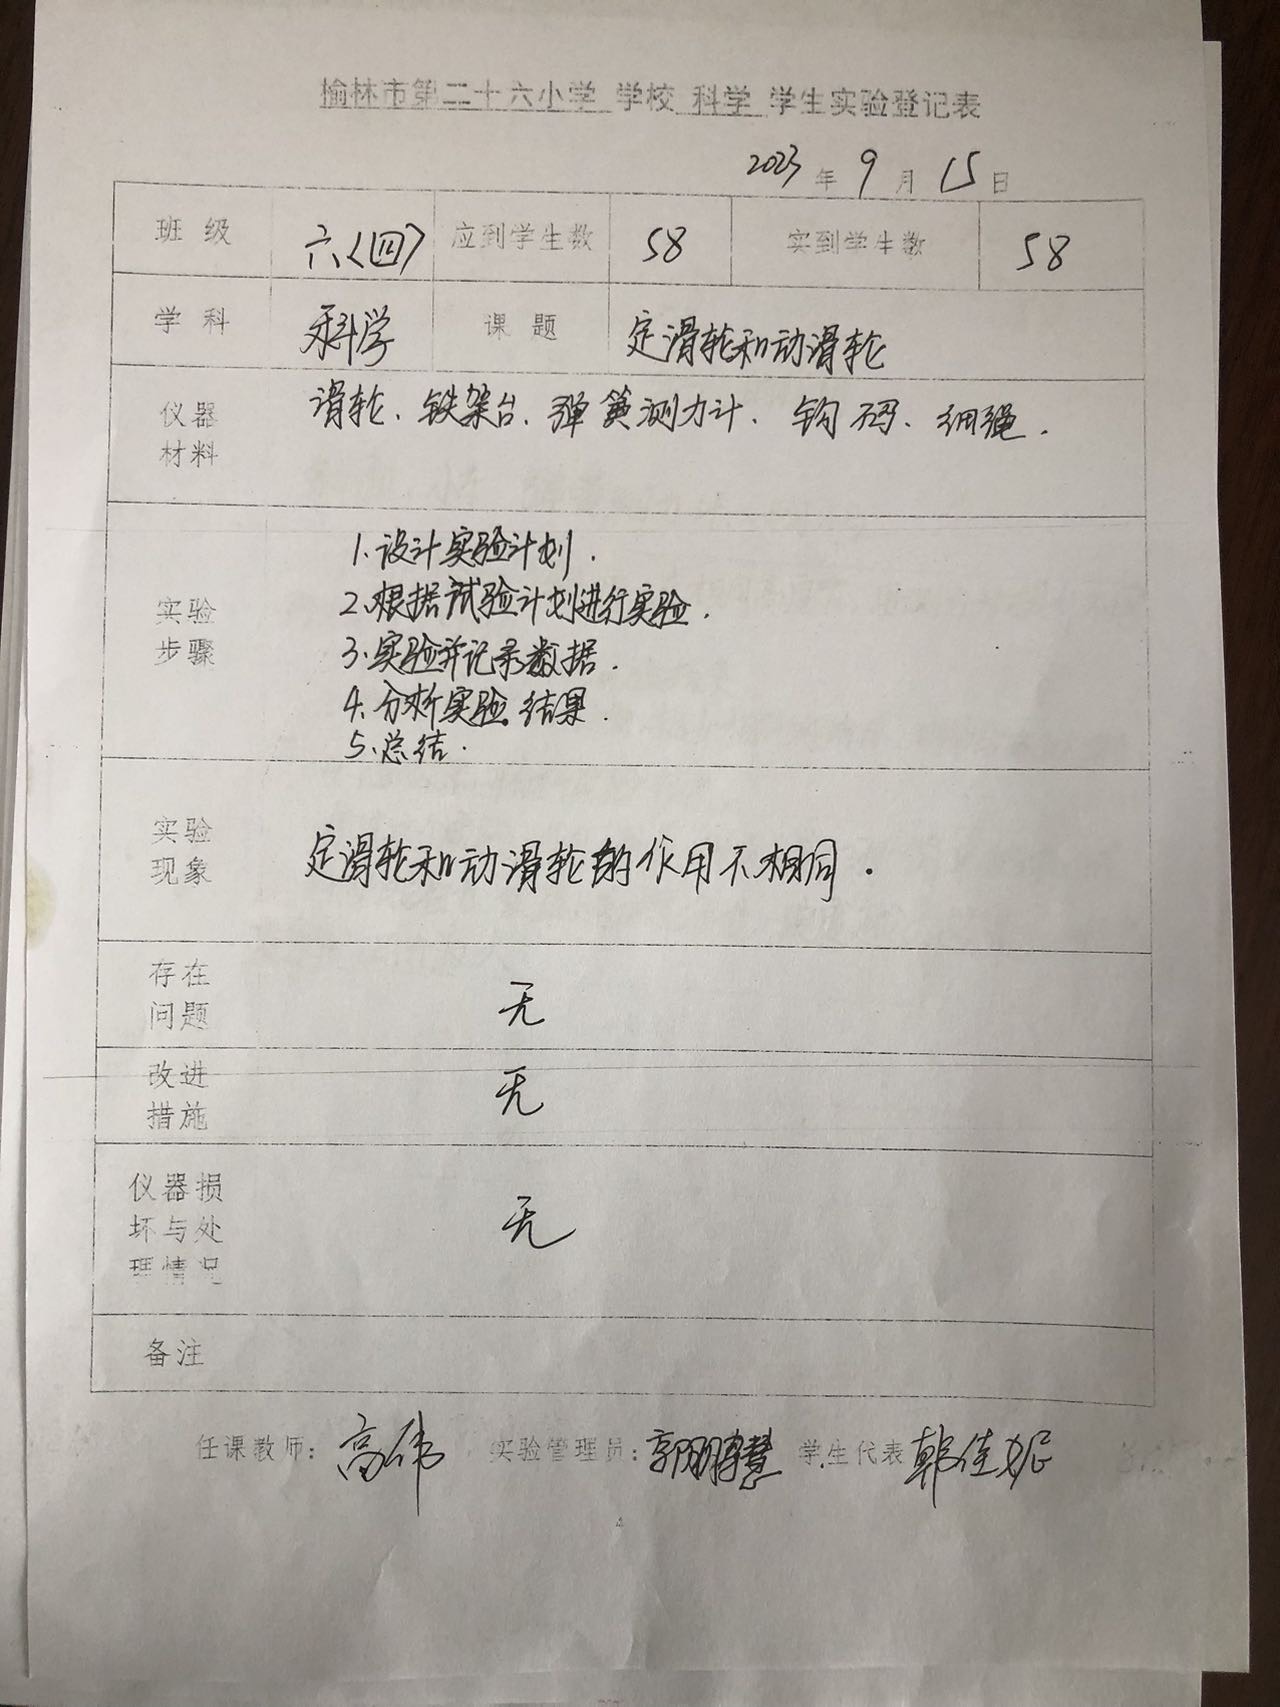 榆林市第二十六小学 学校 科学 学生实验登记表
2023 年 9 月 15 日
班 级 六〈四〉 应到学生数 58 实到学生数 58
学 科 科学 课 题 定滑轮和动滑轮
仪器 滑轮、铁架台、弹簧测力计、钩码、细绳.
材料
1.设计实验计划.
2.根据试验计划进行实验.
实验
步骤
3.实验并记录数据.
4.分析实验结果.
5.总结.
实验
现象
定滑轮和动滑轮的作用不相同.
存在
问题
无
改进
措施
无
仪器损
坏与处
理情况
无
备注
任课教师：高伟 实验管理员：郭 慧 学生代表 韩佳妮
4